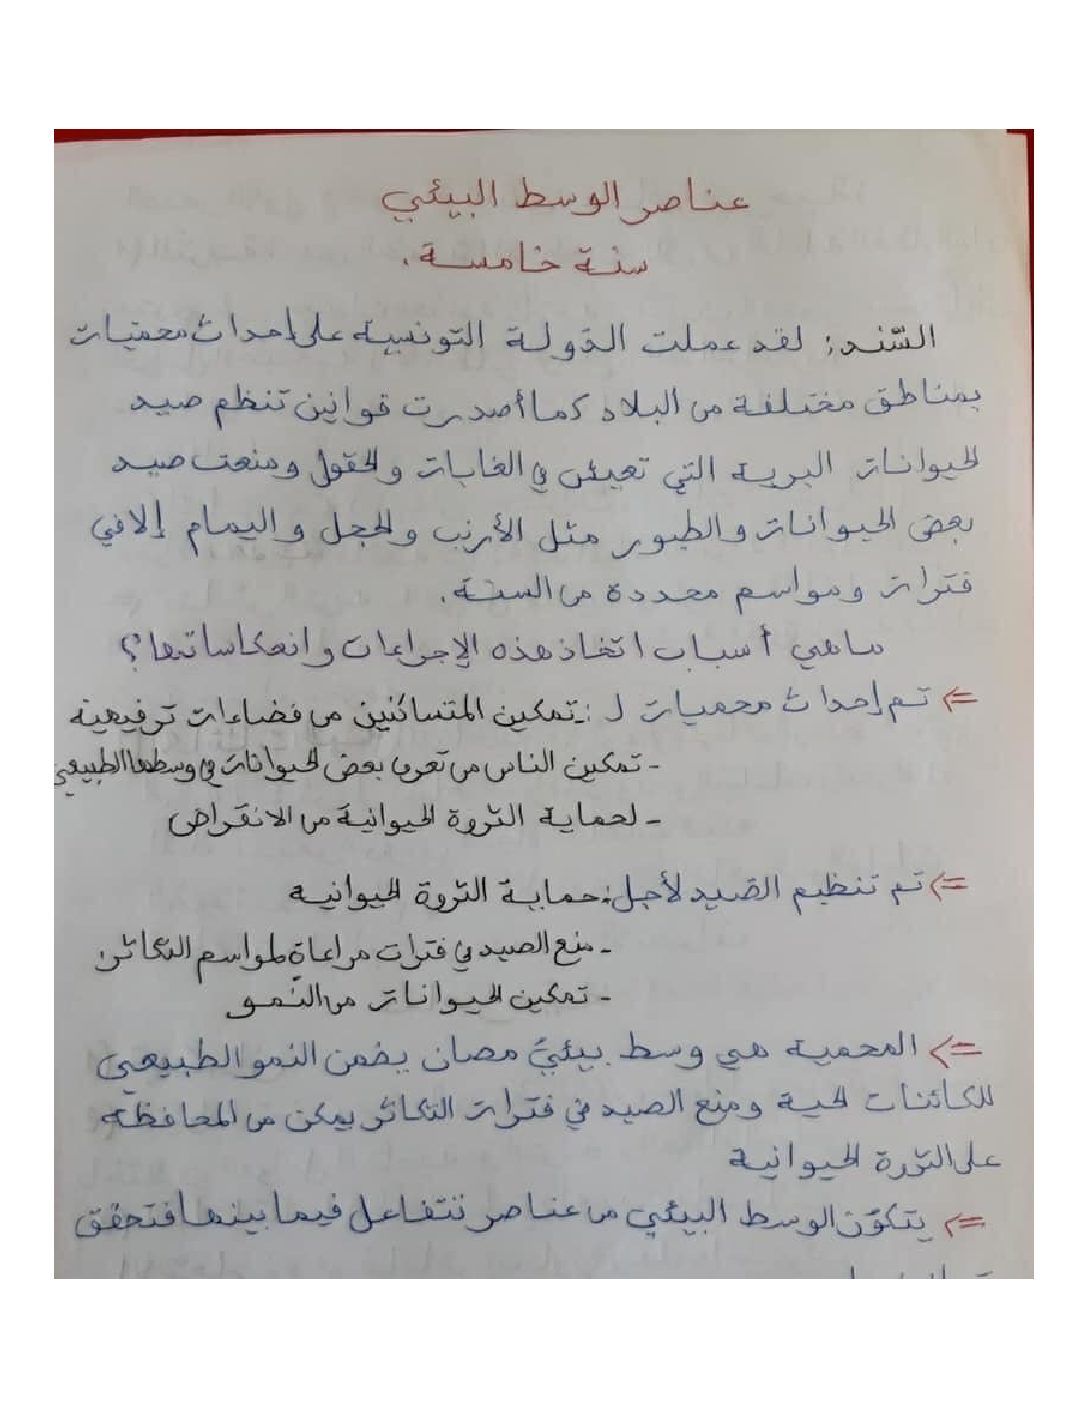 عناصر الوسط البيئي
سنة خامسة.
السّند: لقد عملت الدّولة التونسية على إحداث محميات
بمناطق مختلفة من البلاد كما أصدرت قوانين تنظم صيد
الحيوانات البرية التي تعيش في الغابات والحقول ومنعت صيد
بعض الحيوانات والطيور مثل الأرنب والحجل واليمام إلا في
فترات ومواسم محددة من السنة.
ما هي أسباب اتخاذ هذه الإجراءات وانعكاساتها؟
=> تم إحداث محميات ل: - تمكين المتساكنين من فضاءات ترفيهية
- تمكين الناس من تعرف بعض الحيوانات في وسطها الطبيعي
- لحماية الثروة الحيوانية من الانقراض
=> تم تنظيم الصّيد لأجل: حماية الثروة الحيوانية
- منع الصيد في فترات مراعاة لمواسم التكاثر
- تمكين الحيوانات من النّمو
=> المحمية هي وسط بيئيّ مصان يضمن النمو الطبيعي
للكائنات الحية ومنع الصيد في فترات التكاثر يمكن من المحافظة
على الثروة الحيوانية
=> يتكوّن الوسط البيئي من عناصر تتفاعل فيما بينها فتحقق